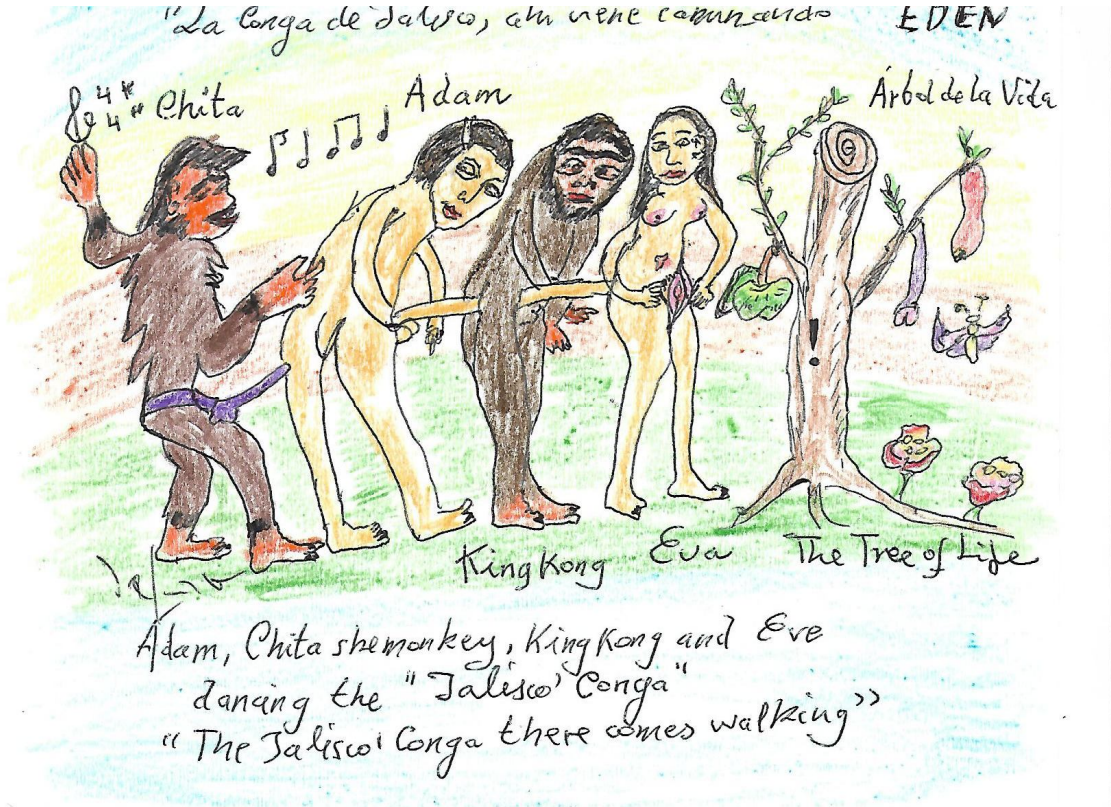 "La Conga de Jalisco, ahí viene caminando
EDEN
4
4
Chita
Adam
Árbol de la Vida
King Kong
Eva
The Tree of Life
Adam, Chita shemonkey, King Kong and Eve
dancing the "Jalisco' Conga"
"The Jalisco' Conga there comes walking"